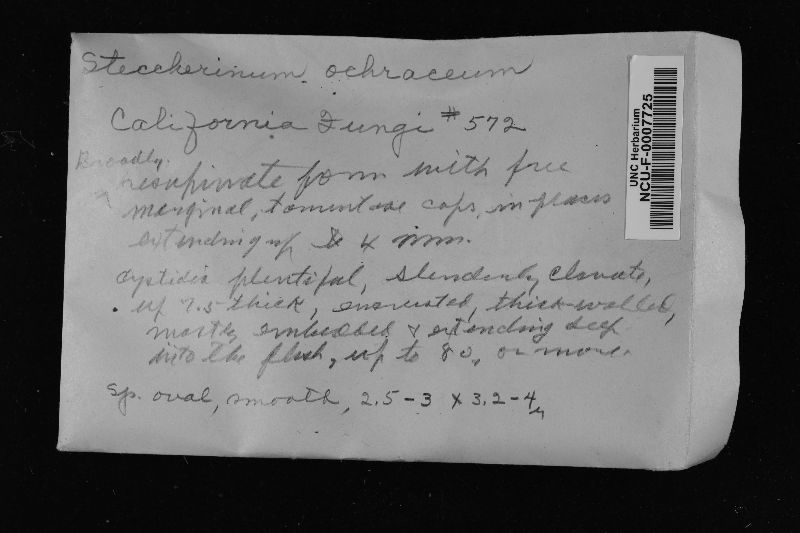 Steccherinum ochraceum
California Fungi #572
Broadly
resupinate form with free
marginal, tomentose caps, in places
extending up to 4 mm.
Cystidia plentiful, slenderly clavate,
up 7.5 thick, encrusted, thick-walled,
mostly embedded & extending deep
into the flesh, up to 80, or more.
sp. oval, smooth, 2.5-3 x 3.2-4µ
UNC Herbarium
NCU-F-0007725